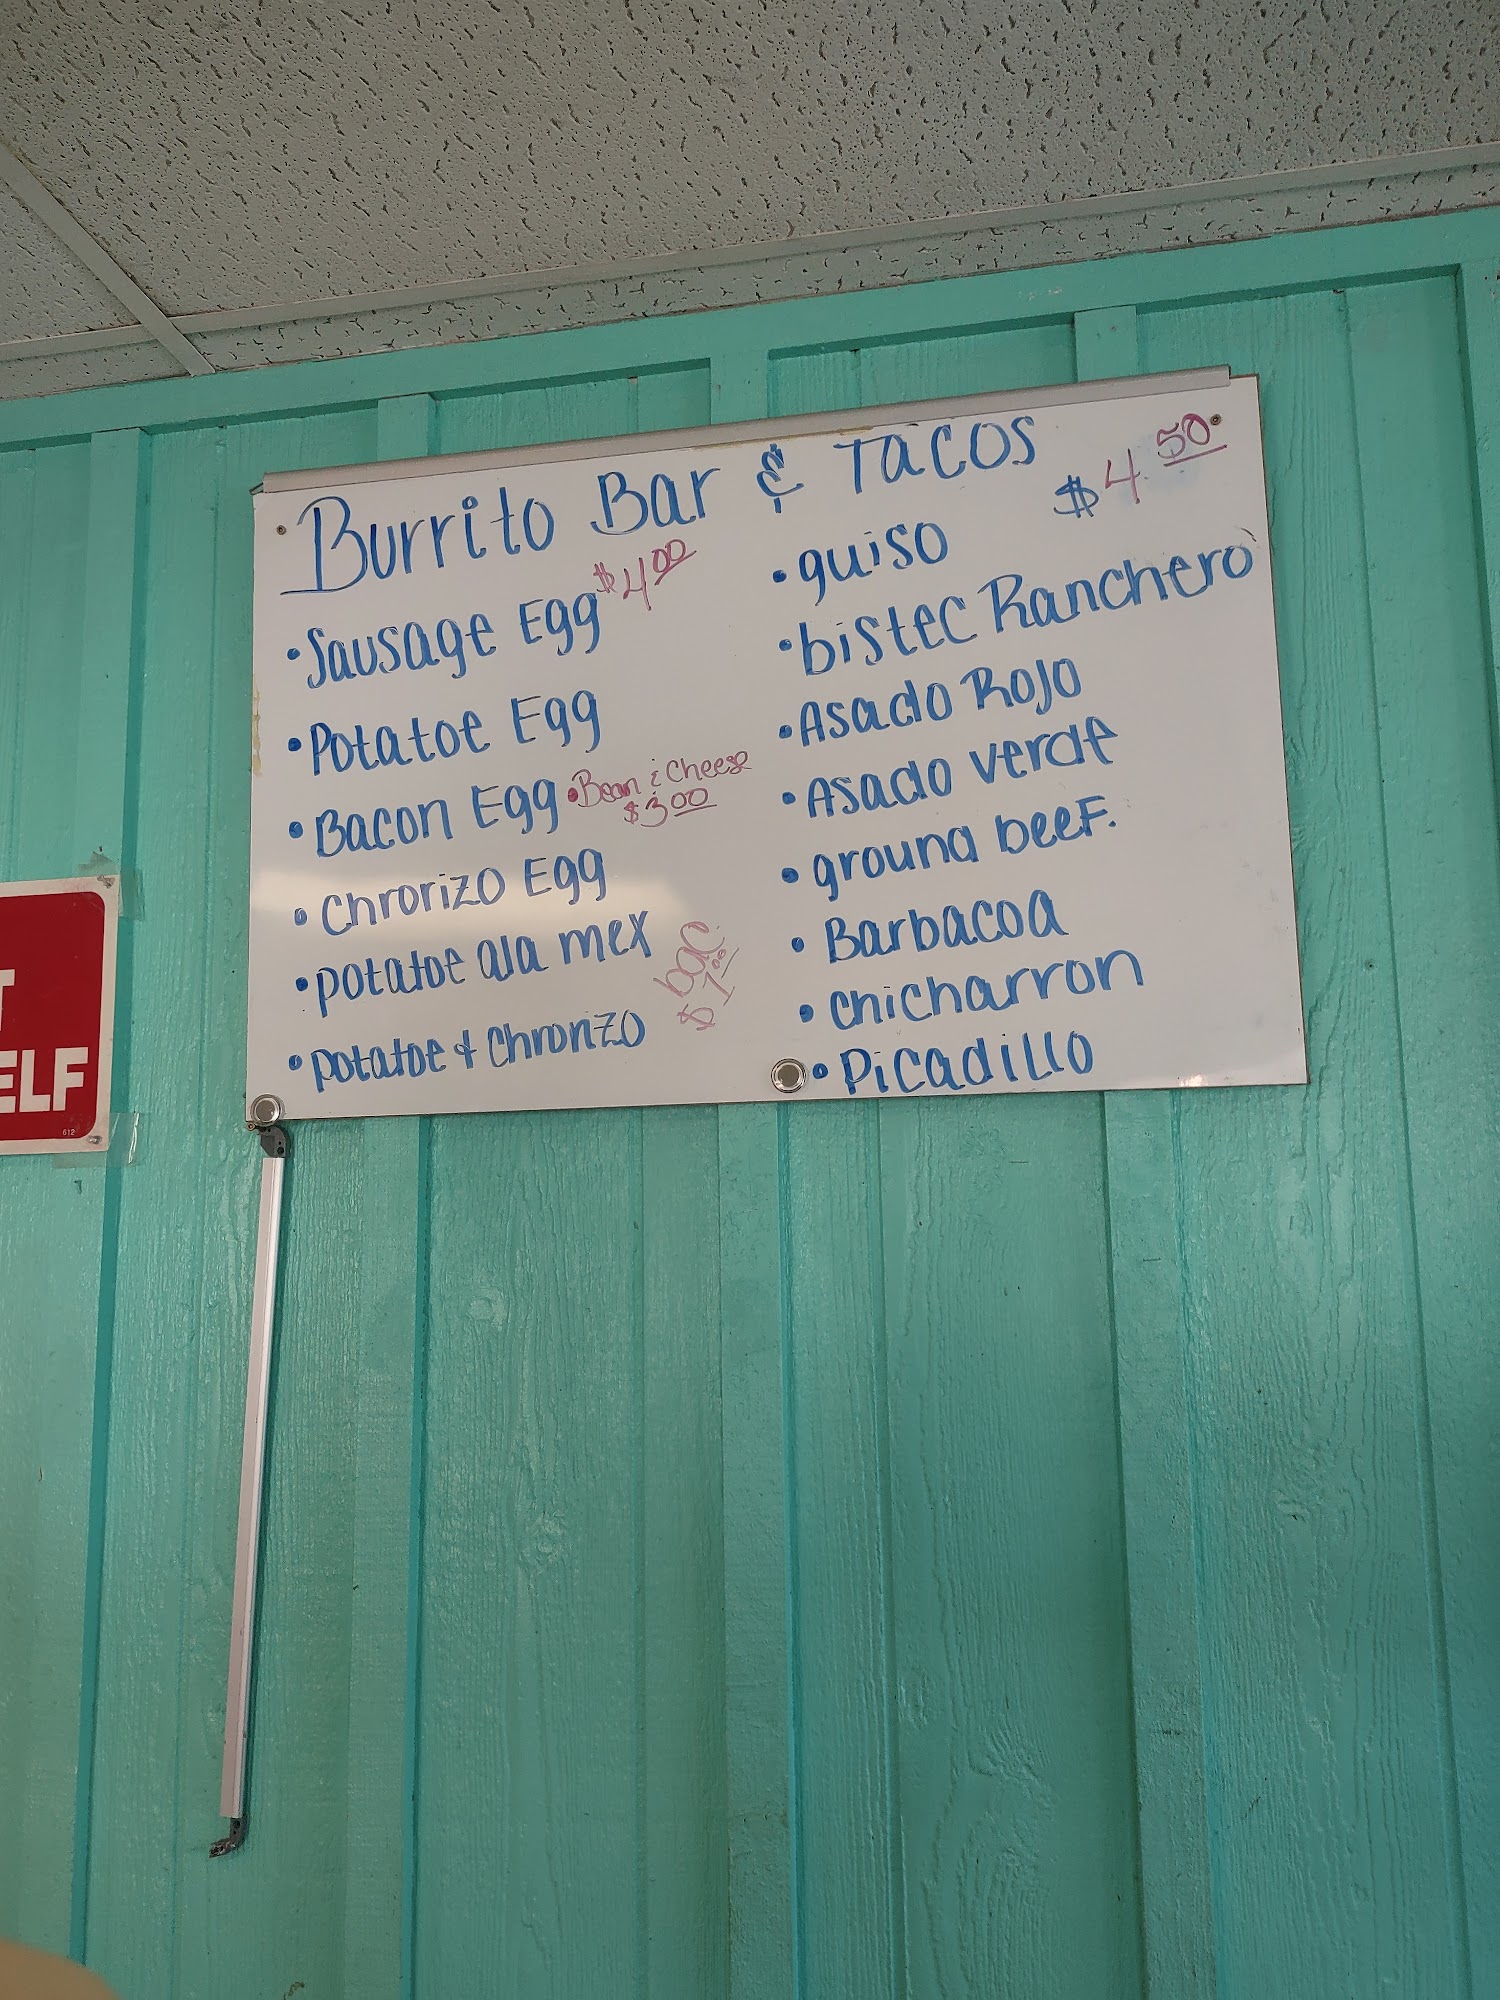 Burrito Bar & Tacos
$4.00
• Sausage Egg
• Potatoe Egg
• Bacon Egg
• Bean & Cheese
$3.00
• Chrorizo Egg
• potatoe ala mex
• potatoe & Chrorizo
bac.
$1.00
$4.50
• guiso
• bistec Ranchero
• Asado Rojo
• Asado verde
• ground beef.
• Barbacoa
• chicharron
• Picadillo
T
ELF
612